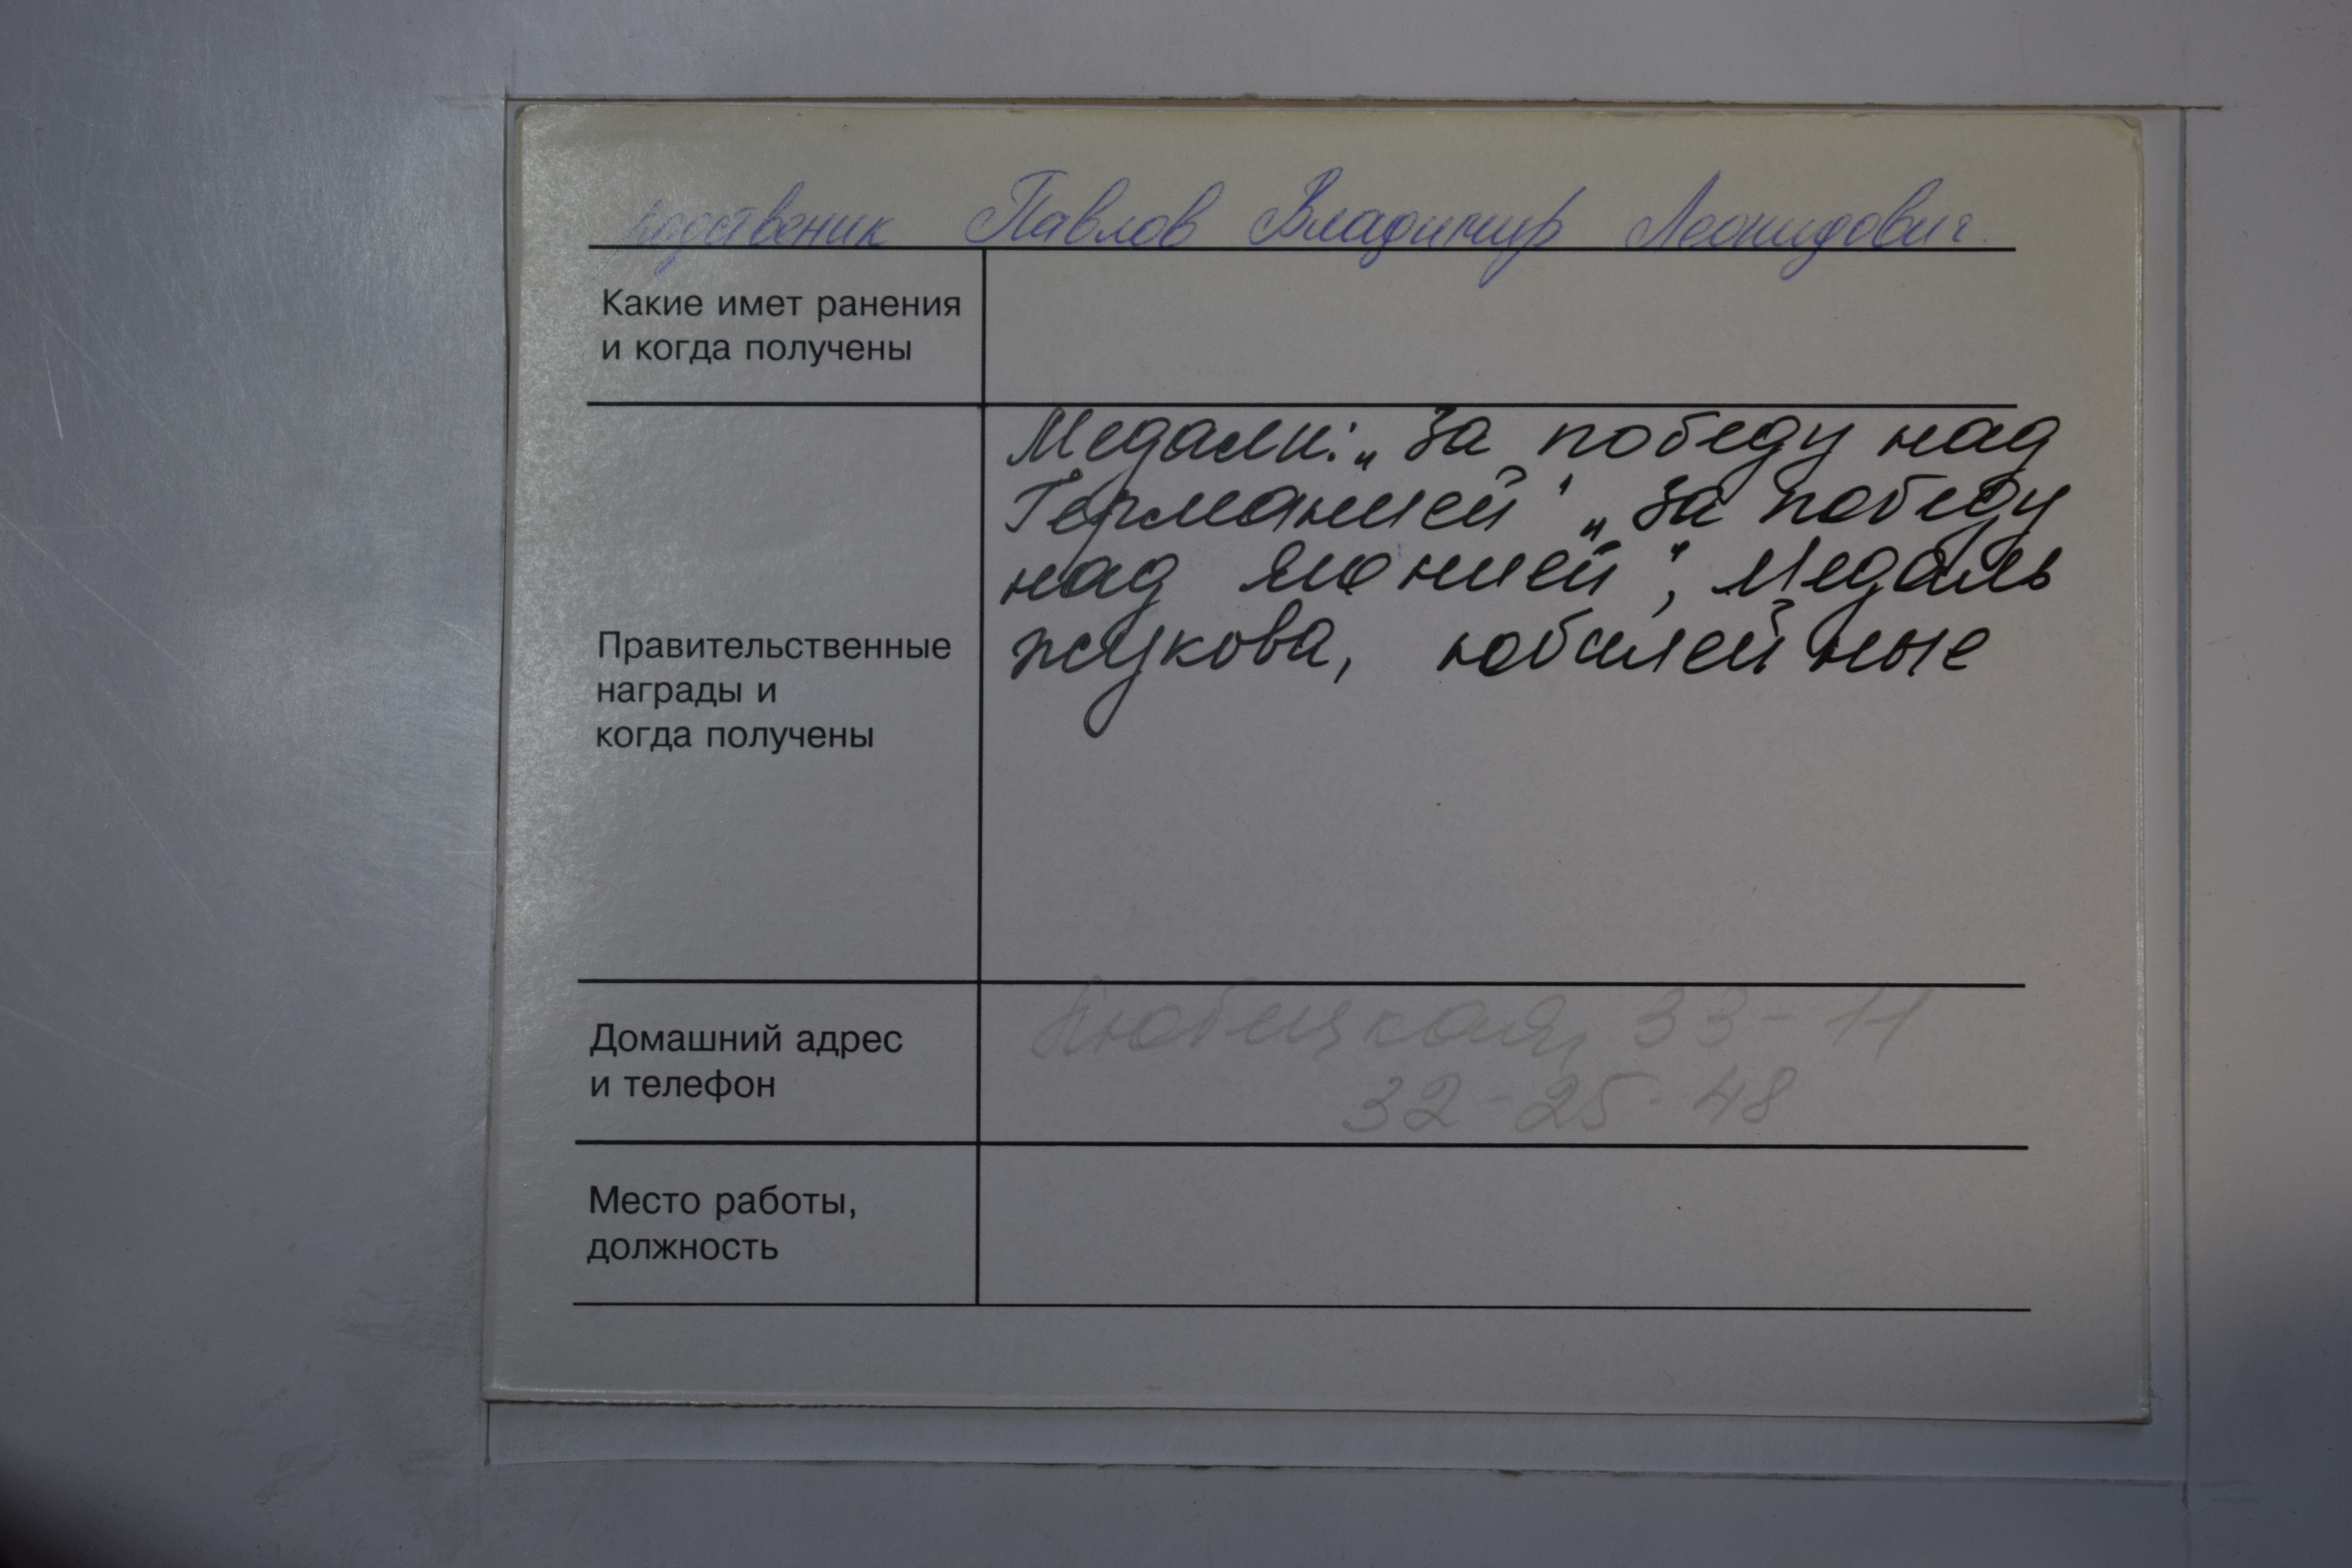 родственик Павлов Владимир Леонидович.
Какие имет ранения
и когда получены
Медали: „За победу над
Германией" „За победу
над Японией", Медаль
Жукова, юбилейные
Правительственные
награды и
когда получены
Домашний адрес
и телефон
Любецкая, 33-11
32-25-48
Место работы,
должность